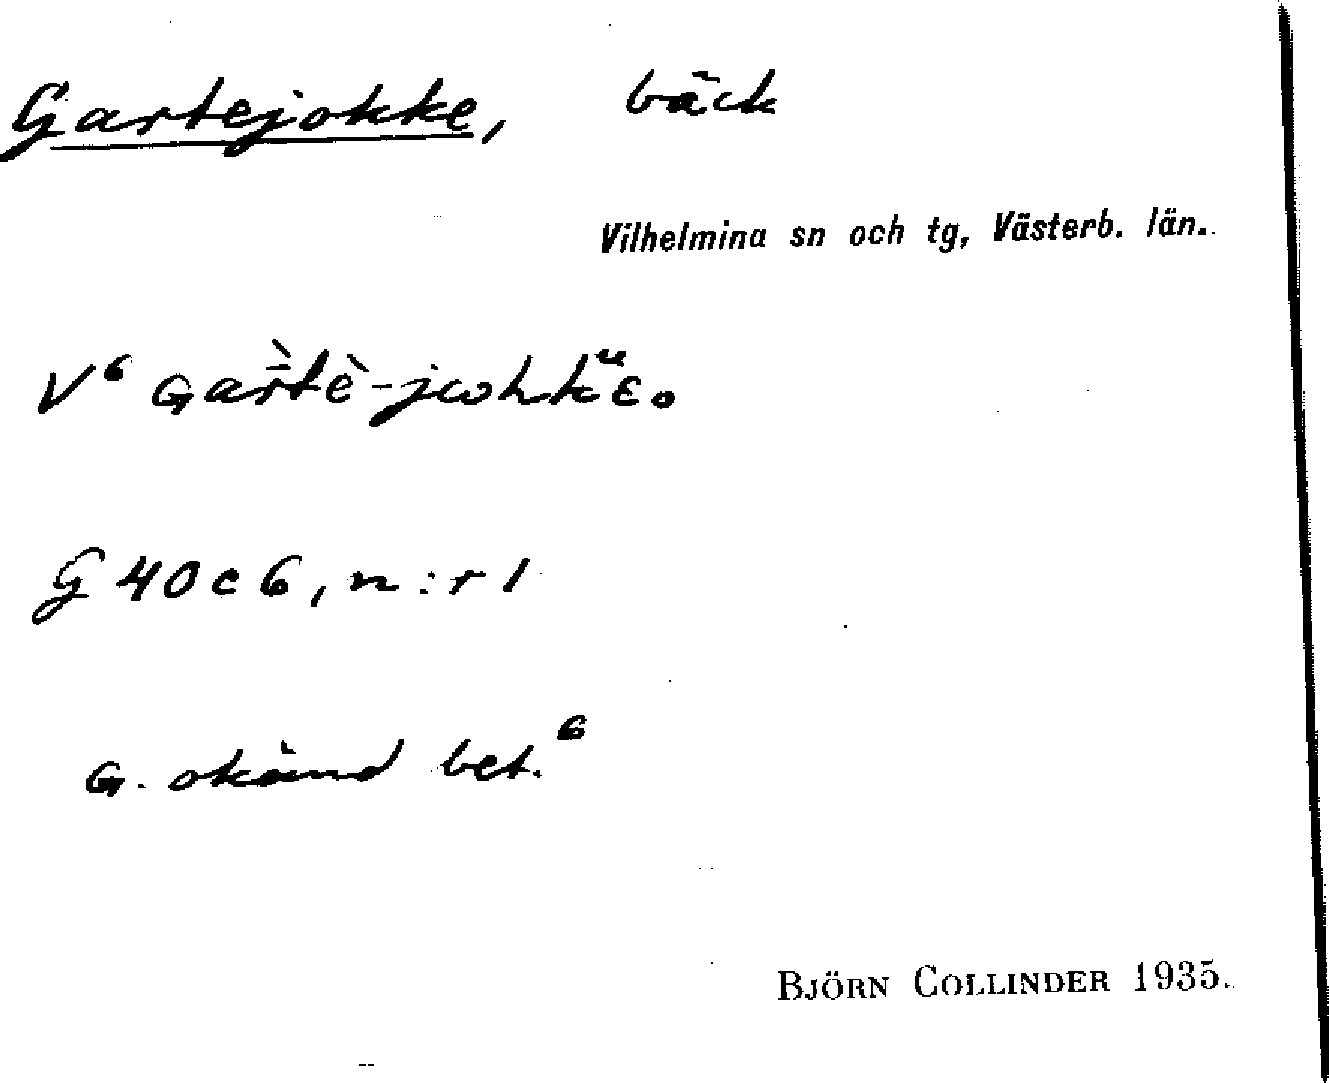 Gartejokke, bäck
Vilhelmina sn och tg, Västerb. län.
V⁶ Gar̀̄tè-jωhkᵘ̈ɛ.
G 40 c 6, n:r 1
G. okänd bet.⁶
BJÖRN COLLINDER 1935.